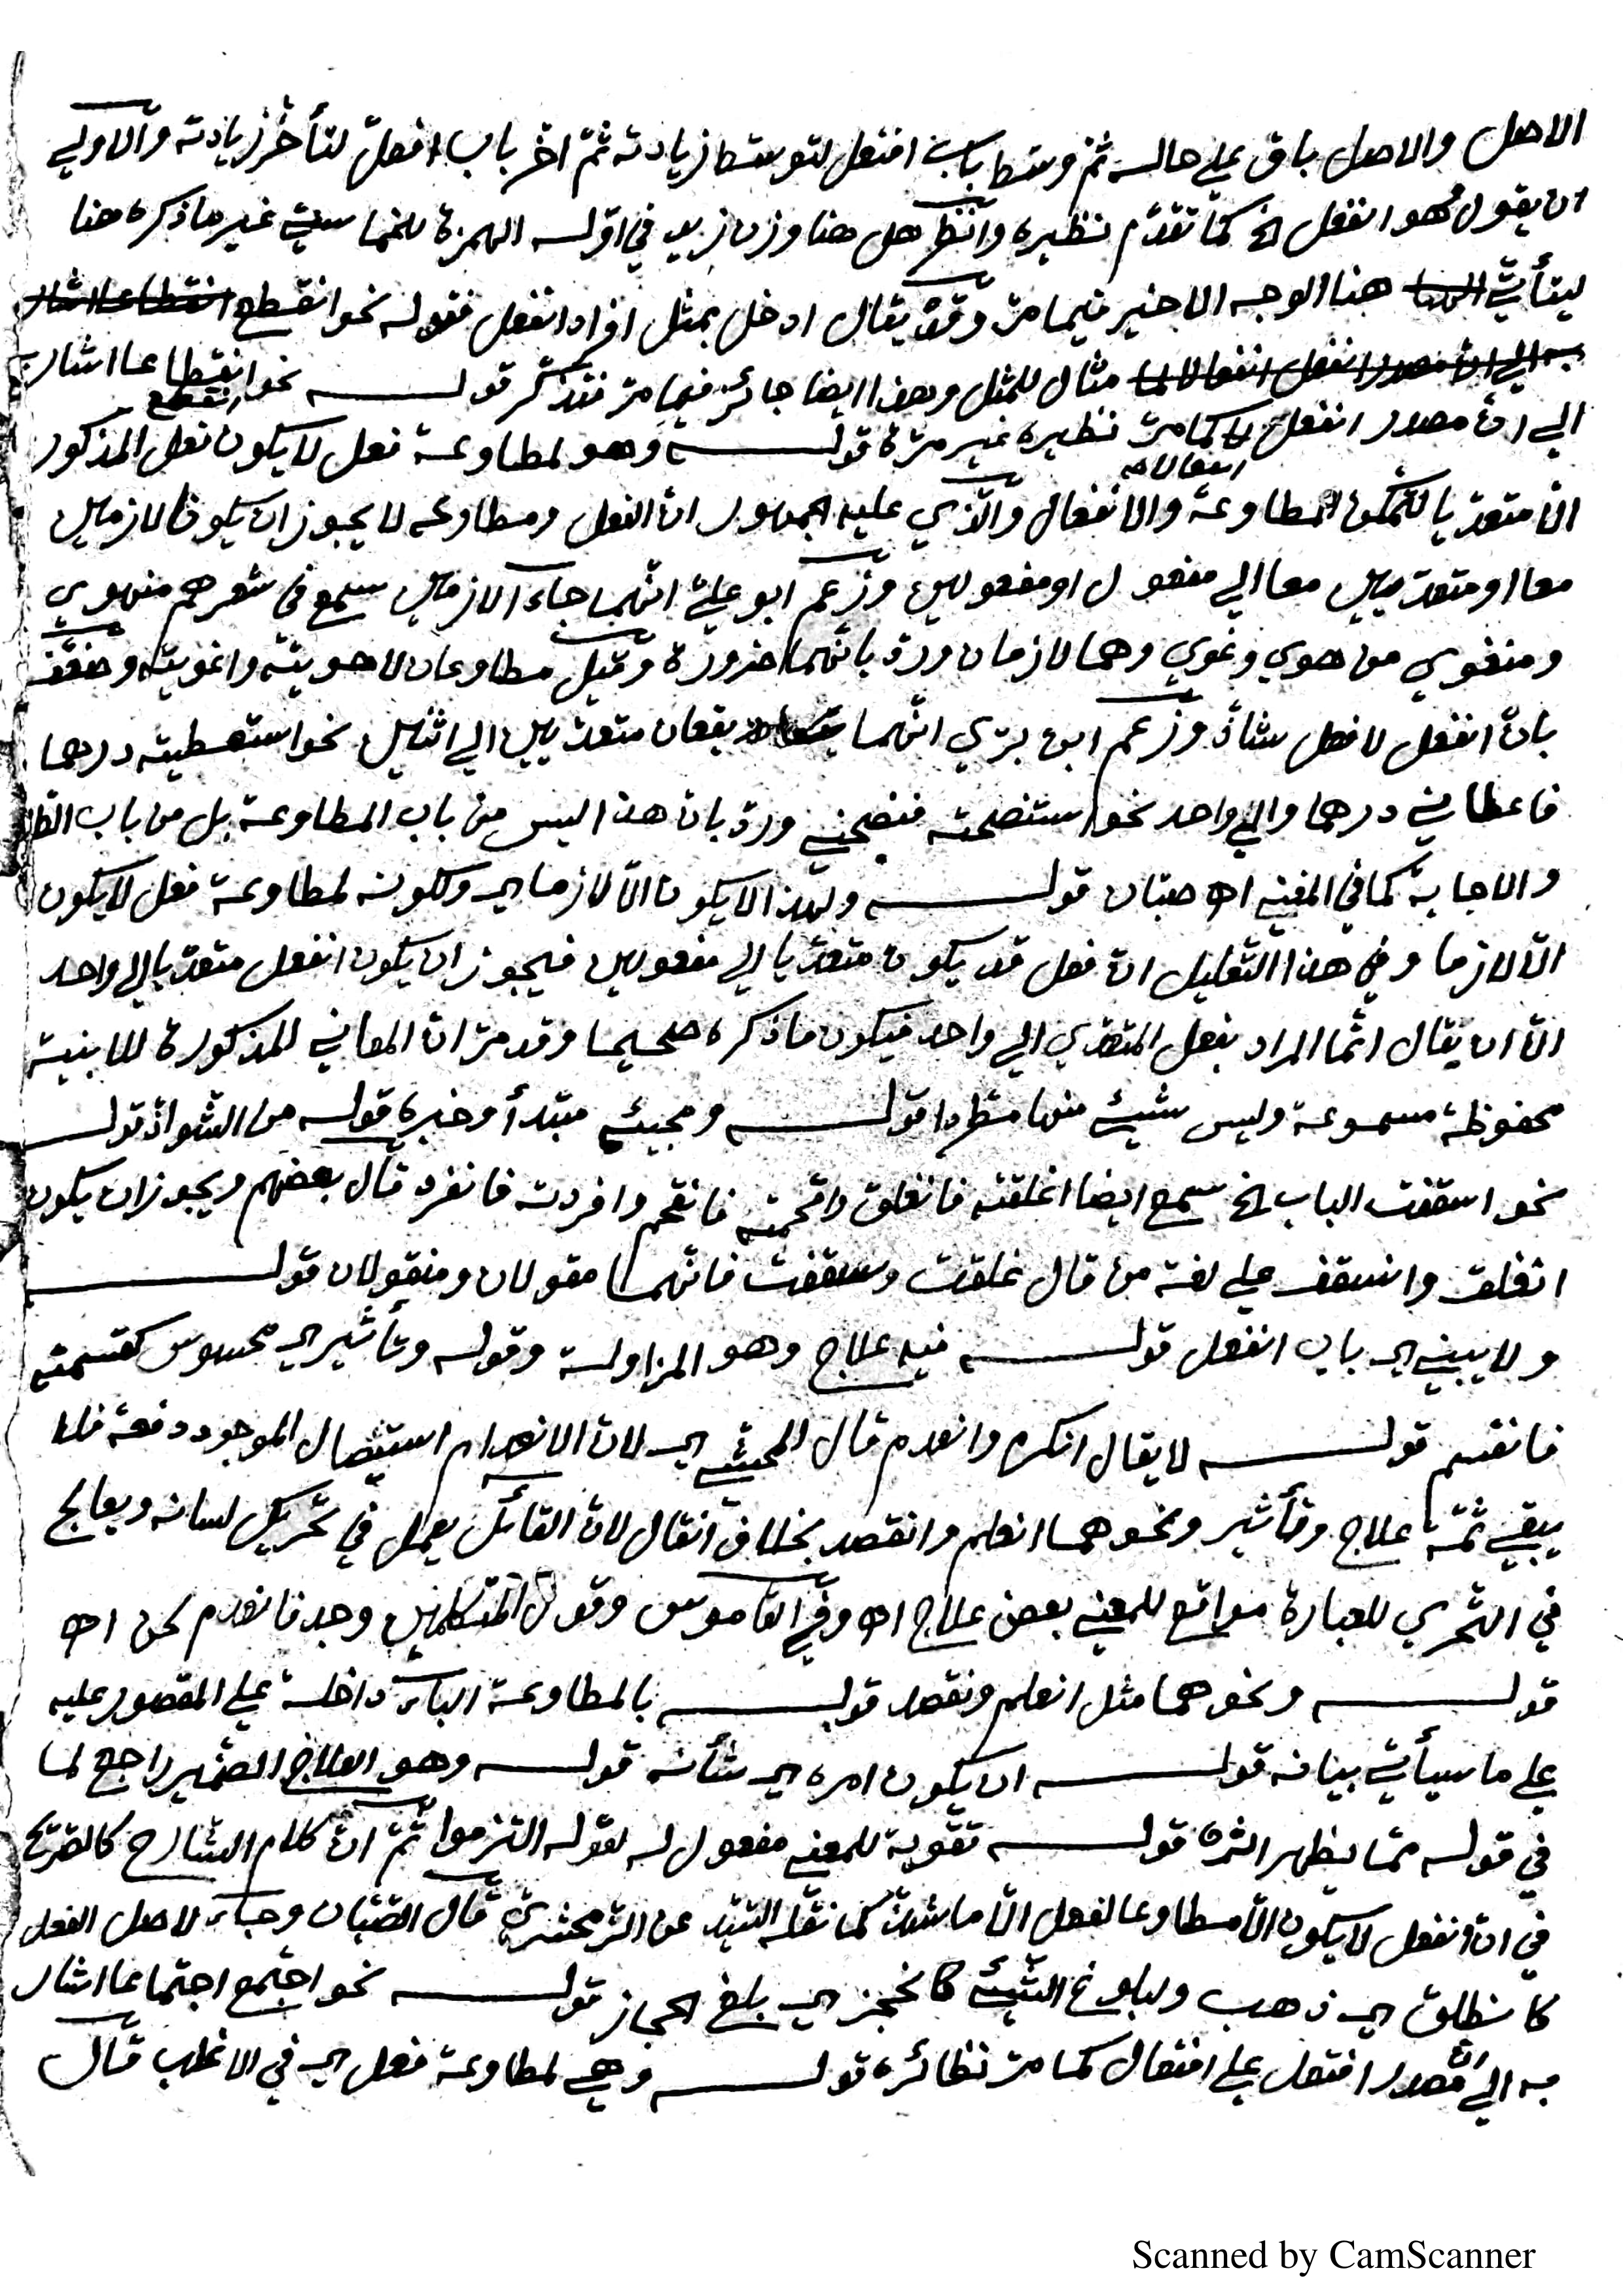 الاصل والاصل باق على حاله ثم وسّط باب افتعل لتوسّط زيادته ثمّ اخّر باب افعلّ لتأخّر زيادته والاولي
ان يقول فهو انفعل الخ كما تقدّم نظيره وانظر هل هنا وزن زيد في اوّله الهمزة للخماسي غير ما ذكره هنا
ليتأتي هنا الوجه الاخير فيما مرّ وقد يقال ادخل بمثل افراد انفعل فقوله نحو انقطع انقطاعا اشار
به الي انّ مصدر انفعل انفعالا مثال للمثل وهذا ايضا جائز فيما مرّ فتذكّر قوله نحو انقطع انقطاعا اشار
الي انّ مصدر انفعل انفعالا كما مرّ نظيره غير مرّة قوله وهو لمطاوعة فعل لا يكون فعل المذكور
الّا متعدّيا لتمكن المطاوعة والانفعال والّذي عليه الجمهور انّ الفعل ومطاوعه لا يجوز ان يكونا لازمين
معا او متعدّيين معا الي مفعول او مفعولين وزعم ابو عليّ انّهما جاءا لازمين سمع في شعرهم منهوي
ومنغوي من هوي وغوي وهما لازمان وردّ بانّهما ضرورة وقيل مطاوعان لاهويته واغويته وضعّف
بانّ انفعل لافعل شاذّ وزعم ابن برّي انّهما يقعان متعدّيين الي اثنين نحو استعطيته درهما
فاعطاني درهما والي واحد نحو استنصحته فنصحني وردّ بان هذا ليس من باب المطاوعة بل من باب الطلب
والاجابة كما في المغني اه صبّان قوله ولهذا لا يكون الّا لازما اي ولكونه لمطاوعة فعل لا يكون
الّا لازما وفي هذا التعليل انّ فعل قد يكون متعدّيا الي مفعولين فيجوز ان يكون انفعل متعدّيا الي واحد
الّا ان يقال انّما المراد بفعل المتعدّي الي واحد فيكون ما ذكره صحيحا وقد مرّ انّ المعاني المذكورة للابنية
محفوظة مسموعة وليس شيئ منها مطّردا قوله ومجيئه مبتدأ وخبره قوله من الشواذّ قوله
نحو اسقفت الباب الخ سمع ايضا اغلقته فانغلق واقحمته فانقحم وافردته فانفرد قال بعضهم ويجوز ان يكون
انغلق وانسقف علي لغة من قال غلقت وسقفت فانّهما مقولان ومنقولان قوله
ولا يبني اي باب انفعل قوله فيه علاج وهو المزاولة وقوله وتأثير اي محسوس كقسمته
فانقسم قوله لا يقال انكرم وانعدم قال المحشّي اي لانّ الانعدام استيصال الموجود دفعة فلا
يبقي ثمّة علاج وتأثير ونحوهما انعلم وانقصد بخلاف انقال لانّ القائل يعمل في تحريك لسانه ويعالج
في التحري للعبارة مواقع للمعني بعض علاج اه وفي القاموس وقول المتكلمين وجد فانعدم لحن اه
قوله ونحوهما مثل انعلم ونقصد قوله بالمطاوعة الباء داخلة علي المقصور عليه
علي ما سيأتي بيانه قوله ان يكون امره اي شأنه قوله وهو العلاج الضمير راجع لما
في قوله ممّا يظهر اثره قوله تقوية للمعني مفعول له لقوله التزموا ثمّ انّ كلام الشارح كالصريح
في انّ انفعل لا يكون الّا مطاوعا لفعل الّا ما شذّ كما نقله السّيد عن الزّمخشري قال الصّبّان وجاء لاصل الفعل
كانطلق اي ذهب ولبلوغ الشّيئ كانحجز اي بلغ الحجاز قوله نحو اجتمع اجتماعا اشار
به الي انّ مصدر افتعل علي افتعال كما مرّ نظائره قوله وهي لمطاوعة فعل اي في الاغلب قال
Scanned by CamScanner